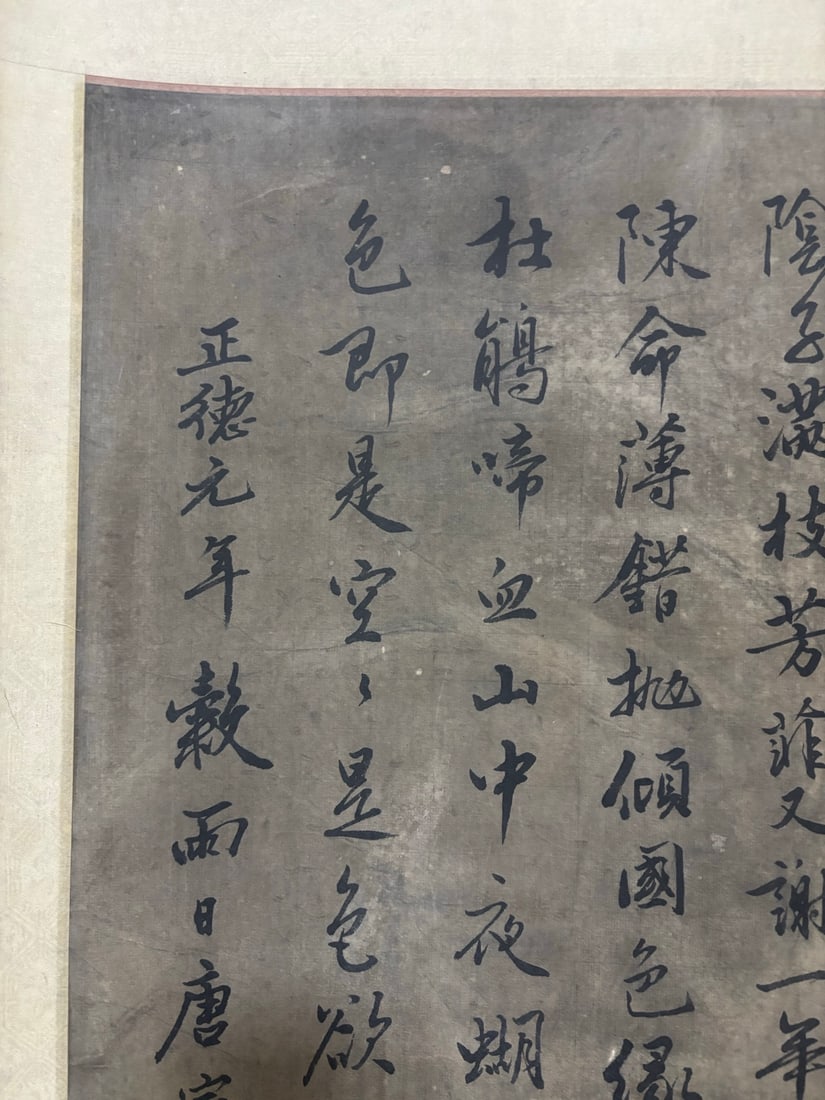 陰子滿枝芳菲又謝一年
陳命薄錯拋傾國色緣
杜鵑啼血山中夜蝴
色即是空〻是色欲
正德元年穀雨日唐